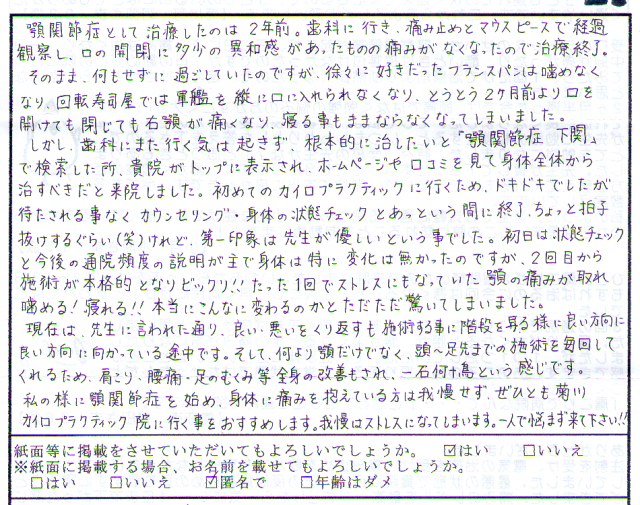 顎関節症として治療したのは2年前。歯科に行き、痛み止めとマウスピースで経過
観察し、口の開閉に多少の異和感があったものの痛みがなくなったので治療終了。
そのまま、何もせずに過ごしていたのですが、徐々に好きだったフランスパンは噛めなく
なり、回転寿司屋では軍艦を縦に口に入れられなくなり、とうとう2ヶ月前より口を
開けても閉じても右顎が痛くなり、寝る事もままならなくなってしまいました。
しかし、歯科にまた行く気は起きず、根本的に治したいと「顎関節症 下関」
で検索した所、貴院がトップに表示され、ホームページや口コミを見て身体全体から
治すべきだと来院しました。初めてのカイロプラクティックに行くため、ドキドキでしたが
待たされる事なくカウンセリング・身体の状態チェックとあっという間に終了、ちょっと拍子
抜けするぐらい(笑)けれど、第一印象は先生が優しいという事でした。初日は状態チェック
と今後の通院頻度の説明が主で身体は特に変化は無かったのですが、2回目から
施術が本格的となりビックリ!!たった1回でストレスにもなっていた顎の痛みが取れ
噛める!寝れる!!本当にこんなに変わるのかとただただ驚いてしまいました。
現在は、先生に言われた通り、良い・悪いをくり返すも施術する事に階段を昇る様に良い方向に
良い方向に向かっている途中です。そして、何より顎だけでなく、頭〜足先までの施術を毎回して
くれるため、肩こり、腰痛・足のむくみ等全身の改善もされ、一石何十鳥という感じです。
私の様に顎関節症を始め、身体に痛みを抱えている方は我慢せず、ぜひとも菊川
カイロプラクティック院に行く事をおすすめします。我慢はストレスになってしまいます。一人で悩まず来て下さい!!
紙面等に掲載をさせていただいてもよろしいでしょうか。 ☑はい □いいえ
※紙面に掲載する場合、お名前を載せてもよろしいでしょうか。
□はい □いいえ ☑匿名で □年齢はダメ